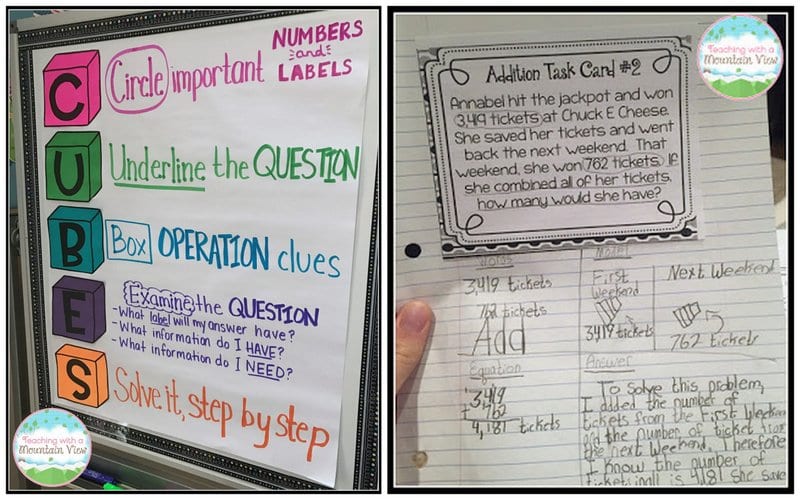 C
U
B
E
S
Circle important NUMBERS
and
LABELS
Underline the QUESTION
Box OPERATION clues
Examine the QUESTION
- What label will my answer have?
- What information do I HAVE?
- What information do I NEED?
Solve it, step by step
Teaching with a
Mountain View
Teaching with a
Mountain View
Addition Task Card #2
Annabel hit the jackpot and won
3,419 tickets at Chuck E Cheese.
She saved her tickets and went
back the next weekend. That
weekend, she won 762 tickets. If
she combined all of her tickets,
how many would she have?
Words
3,419 tickets
762 tickets
Add
Model
First
Weekend
3419 tickets
Next Weekend
762 tickets
Equation
3,419
+ 762
4,181 tickets
Answer
To solve this problem,
I added the number of
tickets from the First Weekend
and the number of ticket from
the next Weekend. Therefore
I know the number of
tickets in all is 4,181 she save